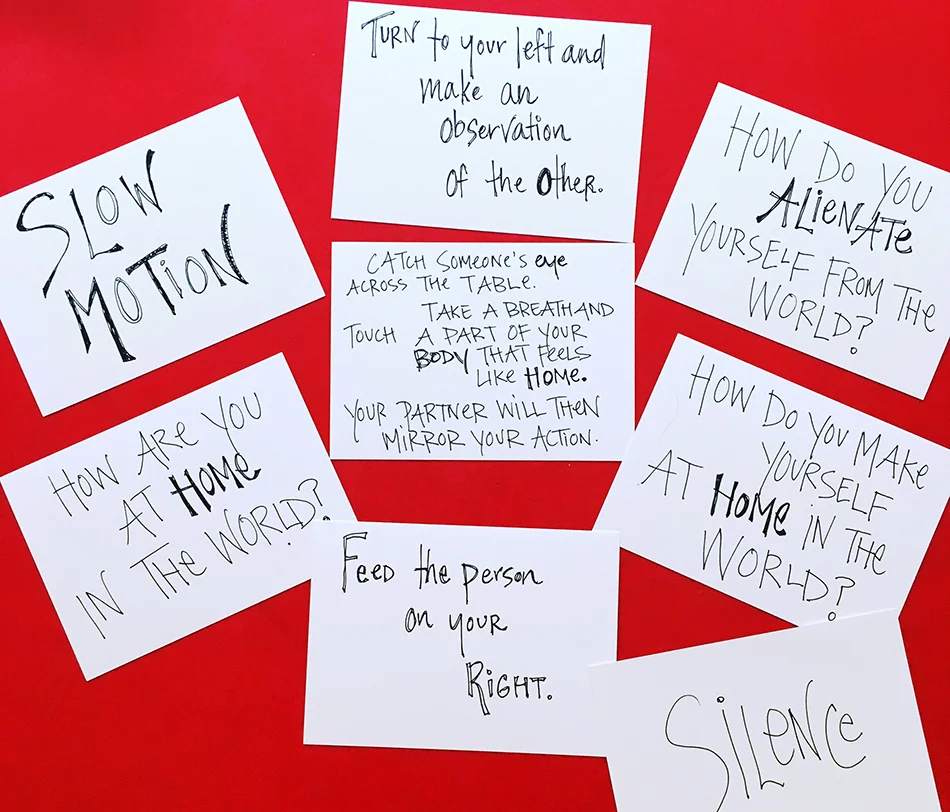 TURN to your left and
make an
observation
of the Other.
SLOW
MOTION
HOW DO YOU
ALIENATE
YOURSELF FROM THE
WORLD?
CATCH SOMEONE'S eye
ACROSS THE TABLE.
TAKE A BREATH AND
TOUCH A PART OF YOUR
BODY THAT FEELS
LIKE HOME.
YOUR PARTNER WILL THEN
MIRROR YOUR ACTION.
HOW ARE YOU
AT HOME
IN THE WORLD?
HOW DO YOU MAKE
YOURSELF
AT HOME IN THE
WORLD?
FEED the person
on your
RIGHT.
SILENCE